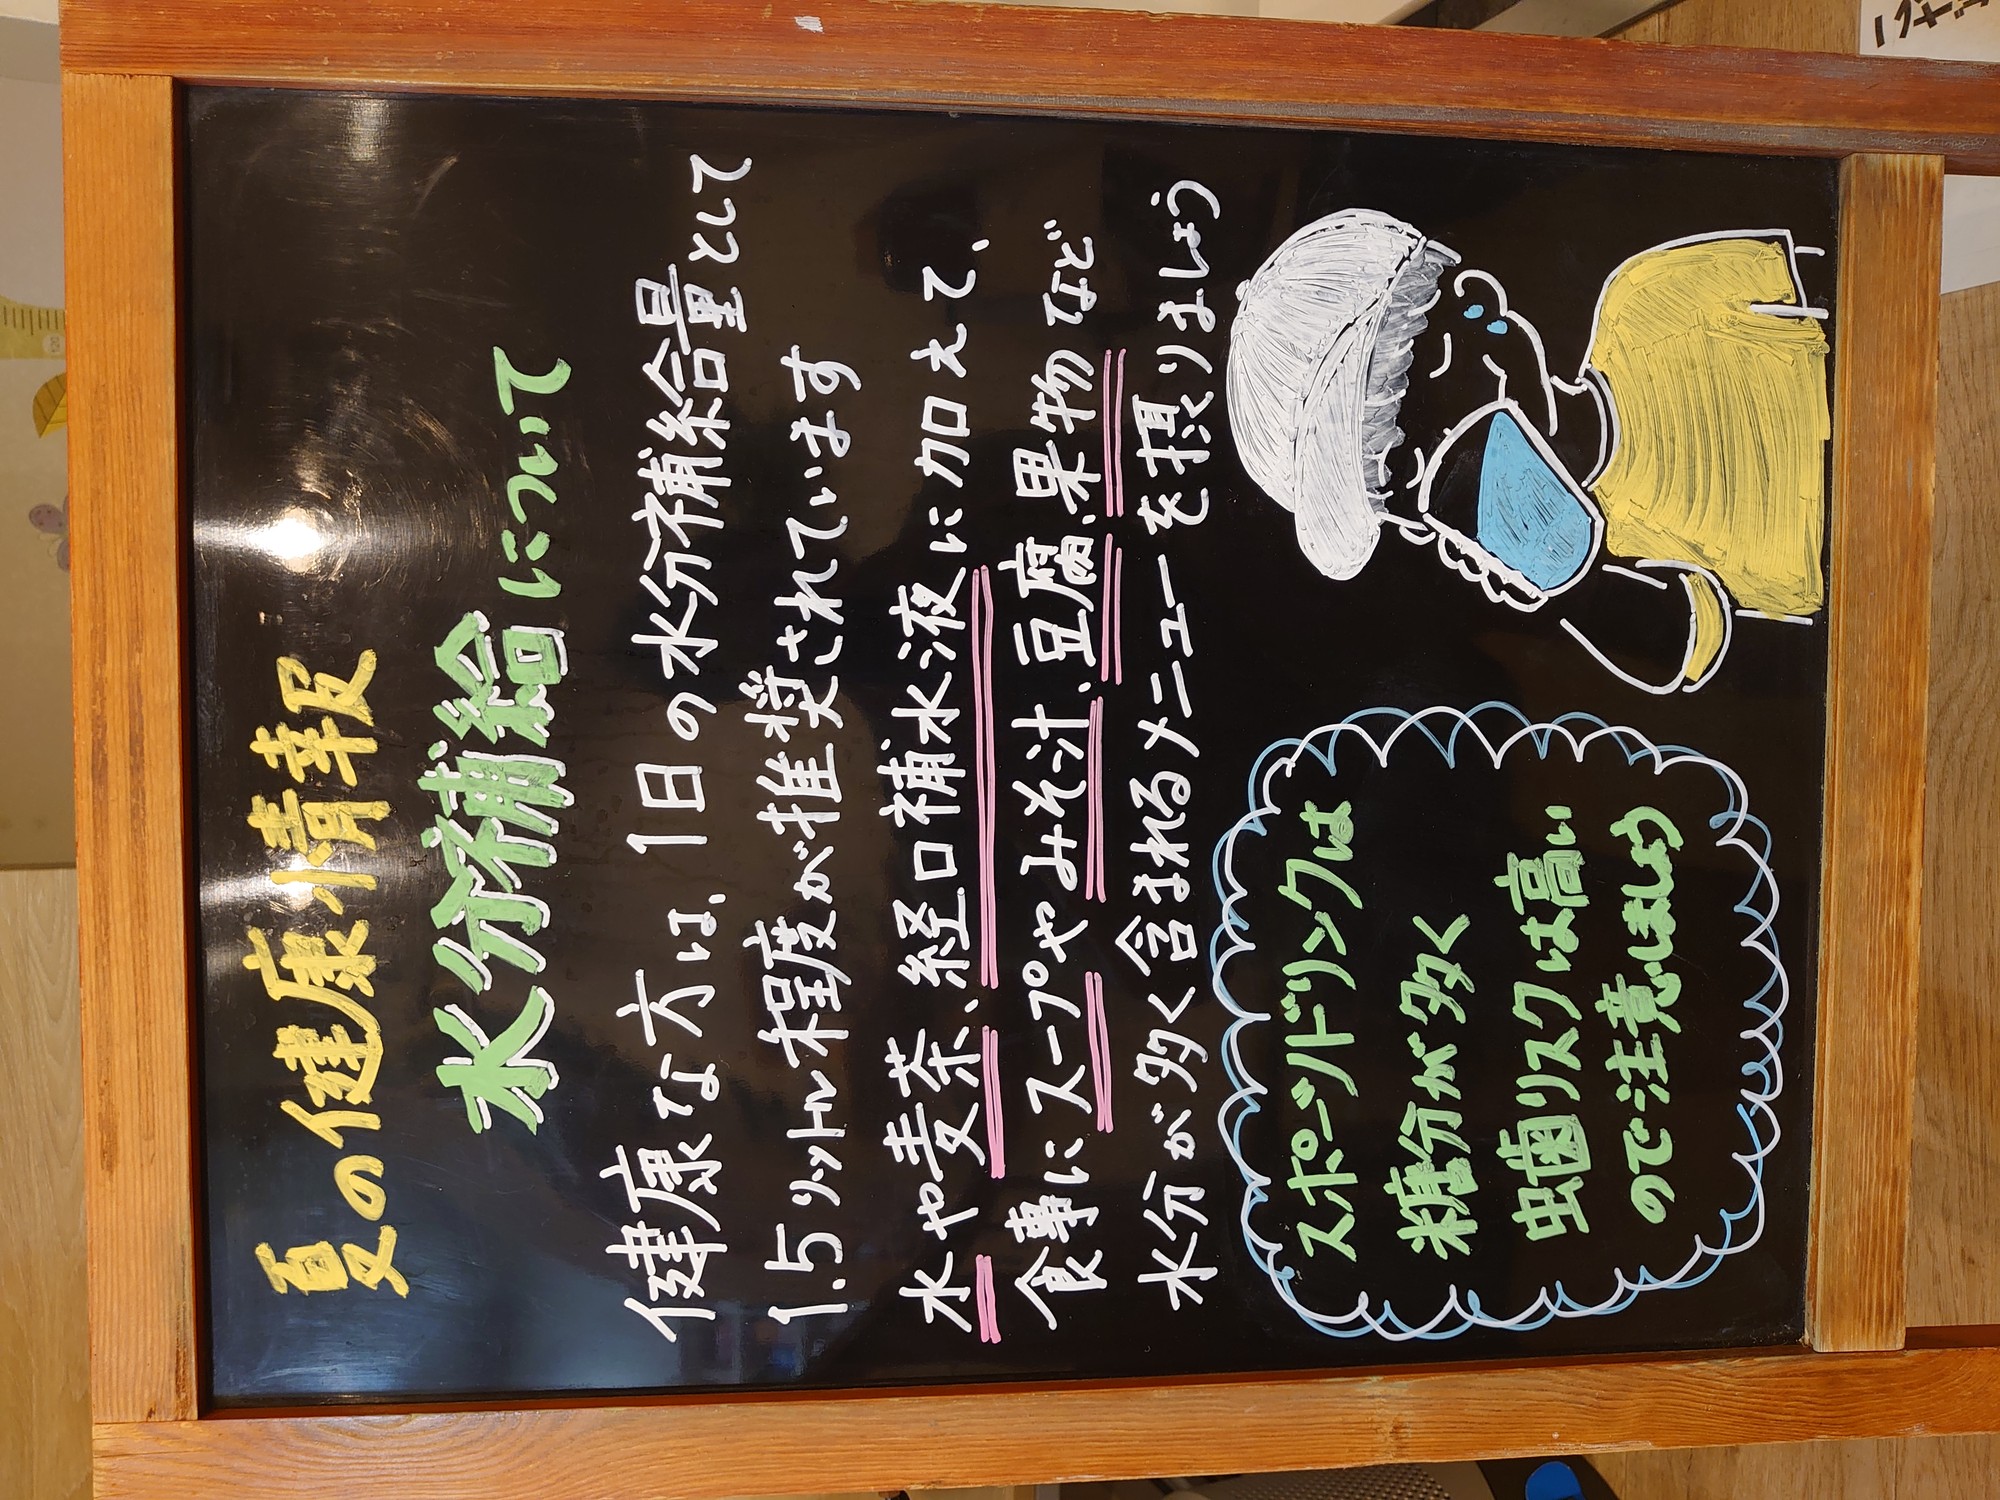 夏の健康情報
水分補給について
健康な方は、1日の水分補給量として
1.5リットル程度が推奨されています
水や麦茶、経口補水液に加えて、
食事にスープやみそ汁、豆腐、果物など
水分が多く含まれるメニューを摂りましょう
スポーツドリンクは
糖分が多く
虫歯リスクは高い
ので注意しましょう